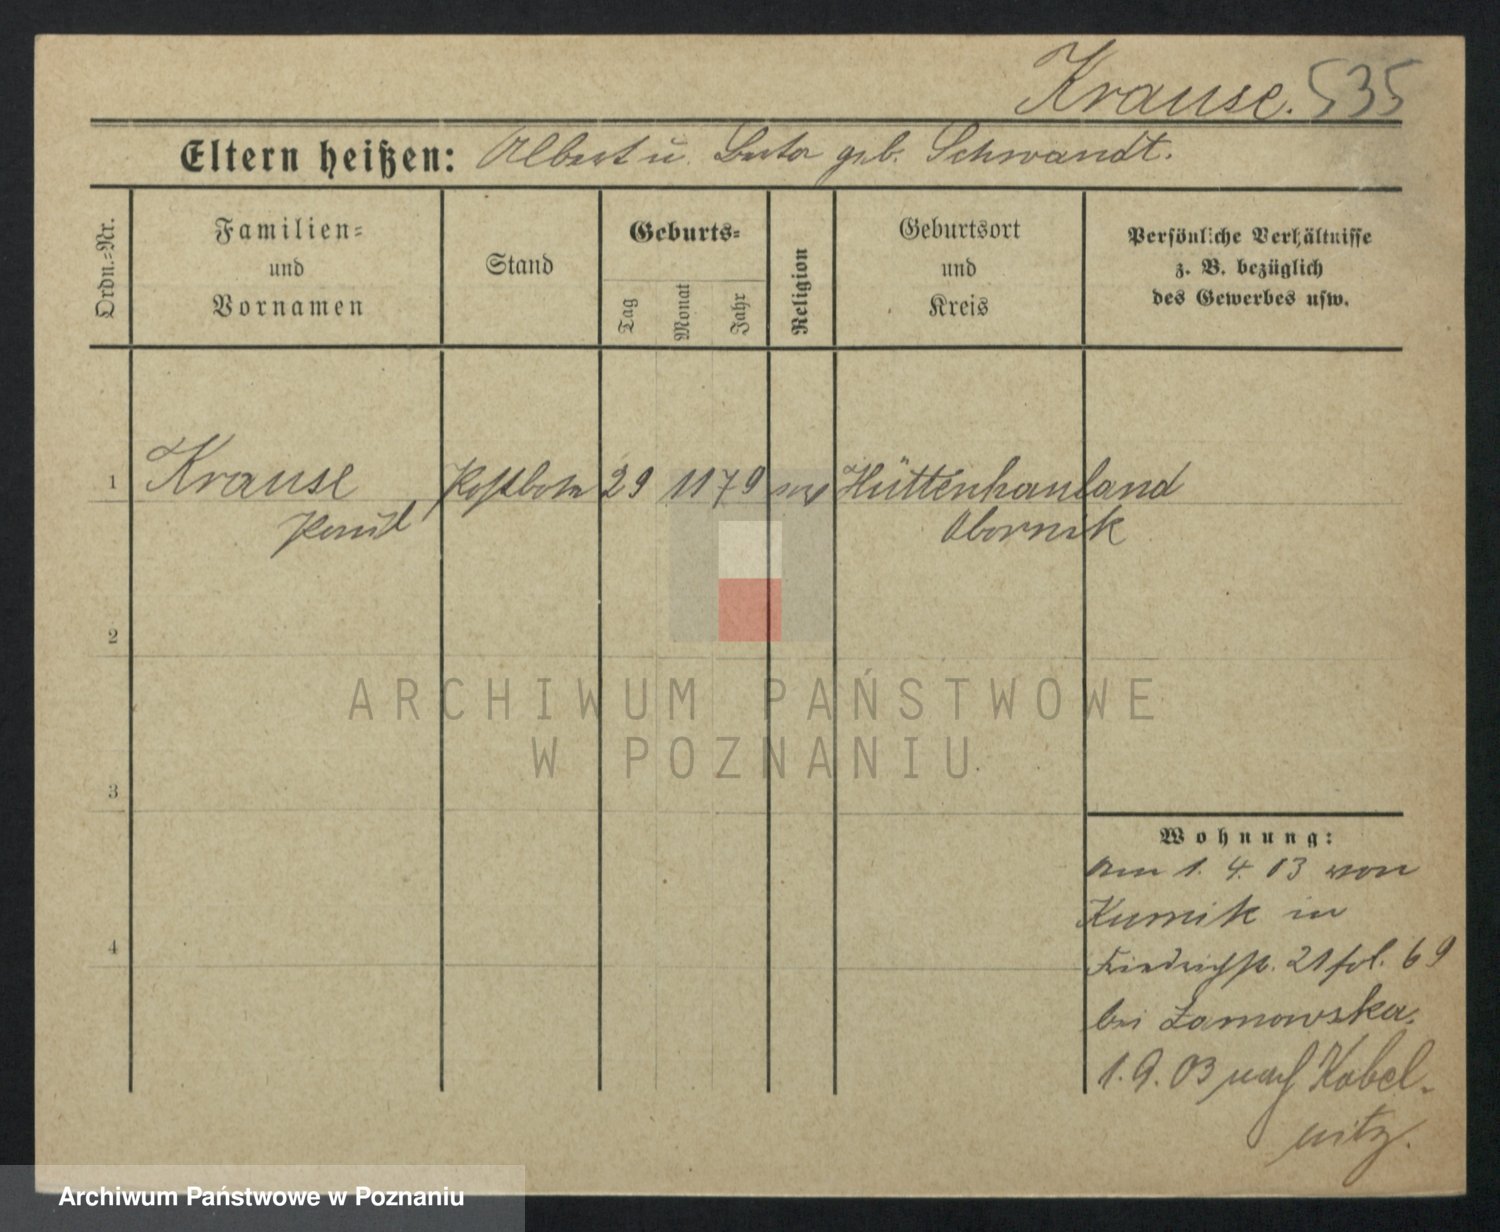 Krause. 535
Eltern heißen: Albert u. Berta geb. Schwandt.
Ordn.-Nr.
Familien-
und
Vornamen
Stand
Geburts-
Tag
Monat
Jahr
Religion
Geburtsort
und
Kreis
Persönliche Verhältnisse
z. B. bezüglich
des Gewerbes usw.
1 Krause Postbote 29 11 79 ev Hüttenhauland
Paul Obornik
2
3
4
Wohnung:
am 1. 4. 03 von
Kurnik in
Friedrichstr. 21 fol. 69
bei
1. 9. 03 nach Kobel-
nitz.
ARCHIWUM PAŃSTWOWE
W POZNANIU
Archiwum Państwowe w Poznaniu